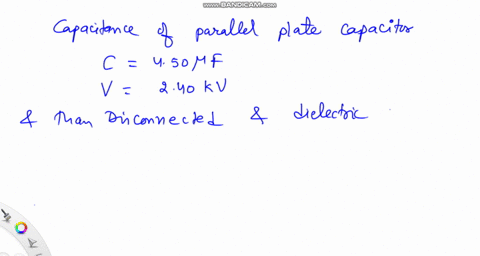 WWW.BANDICAM.COM
Capacitance of parallel plate capacitor
C = 4.50 μF
V = 2.40 kV
& Than Disconnected & dielectric